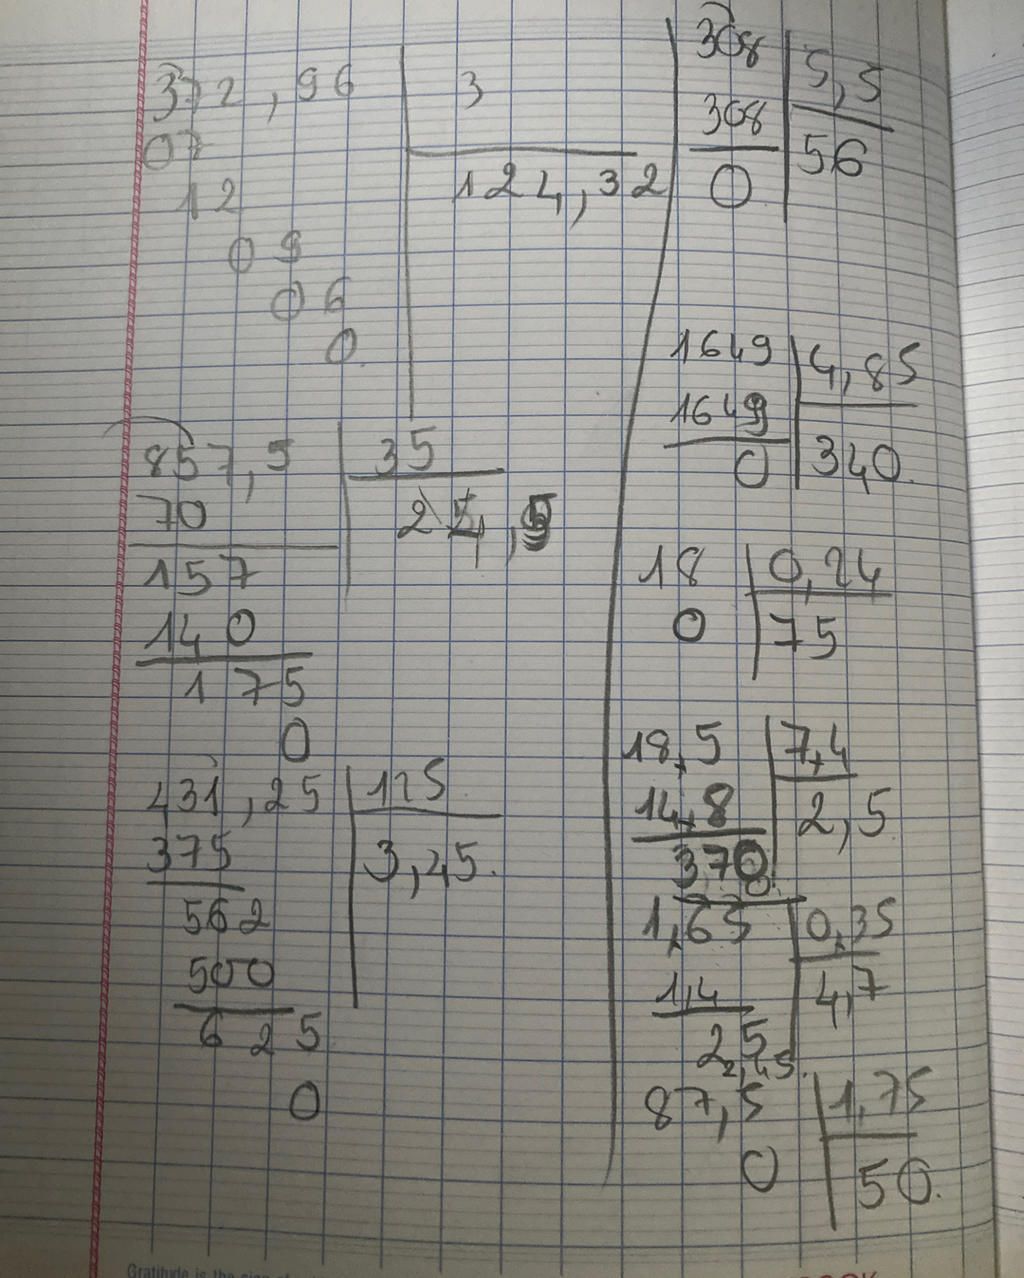 372,96 3
07 124,32
12
09
06
0
857,5 35
70 24,5
157
140
175
0
431,25 125
375 3,45.
562
500
625
0
308 5,5
308 56
0
1649 4,85
1649 340.
0
18 0,24
0 75
18,5 7,4
14,8 2,5.
370
0
1,65 0,35
1,4 4,7
25
2,45.
87,5 1,75
0 50.
Gratitude is the